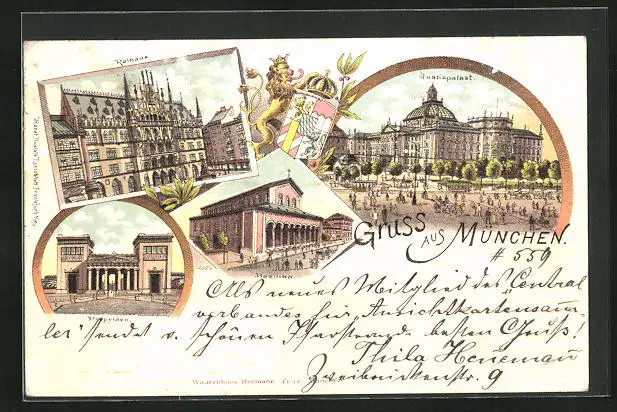 Rathaus.
Justizpalast.
Gruss aus München.
Basilika.
Propyläen.
# 559
Als neues Mitglied des "Central
verbandes für "Ansichtkartensamm
ler" sendet v. schönen Isarstrand besten Gruß!
Thila
Zweibrückenstr. 9
Waarenhaus Hermann Tietz